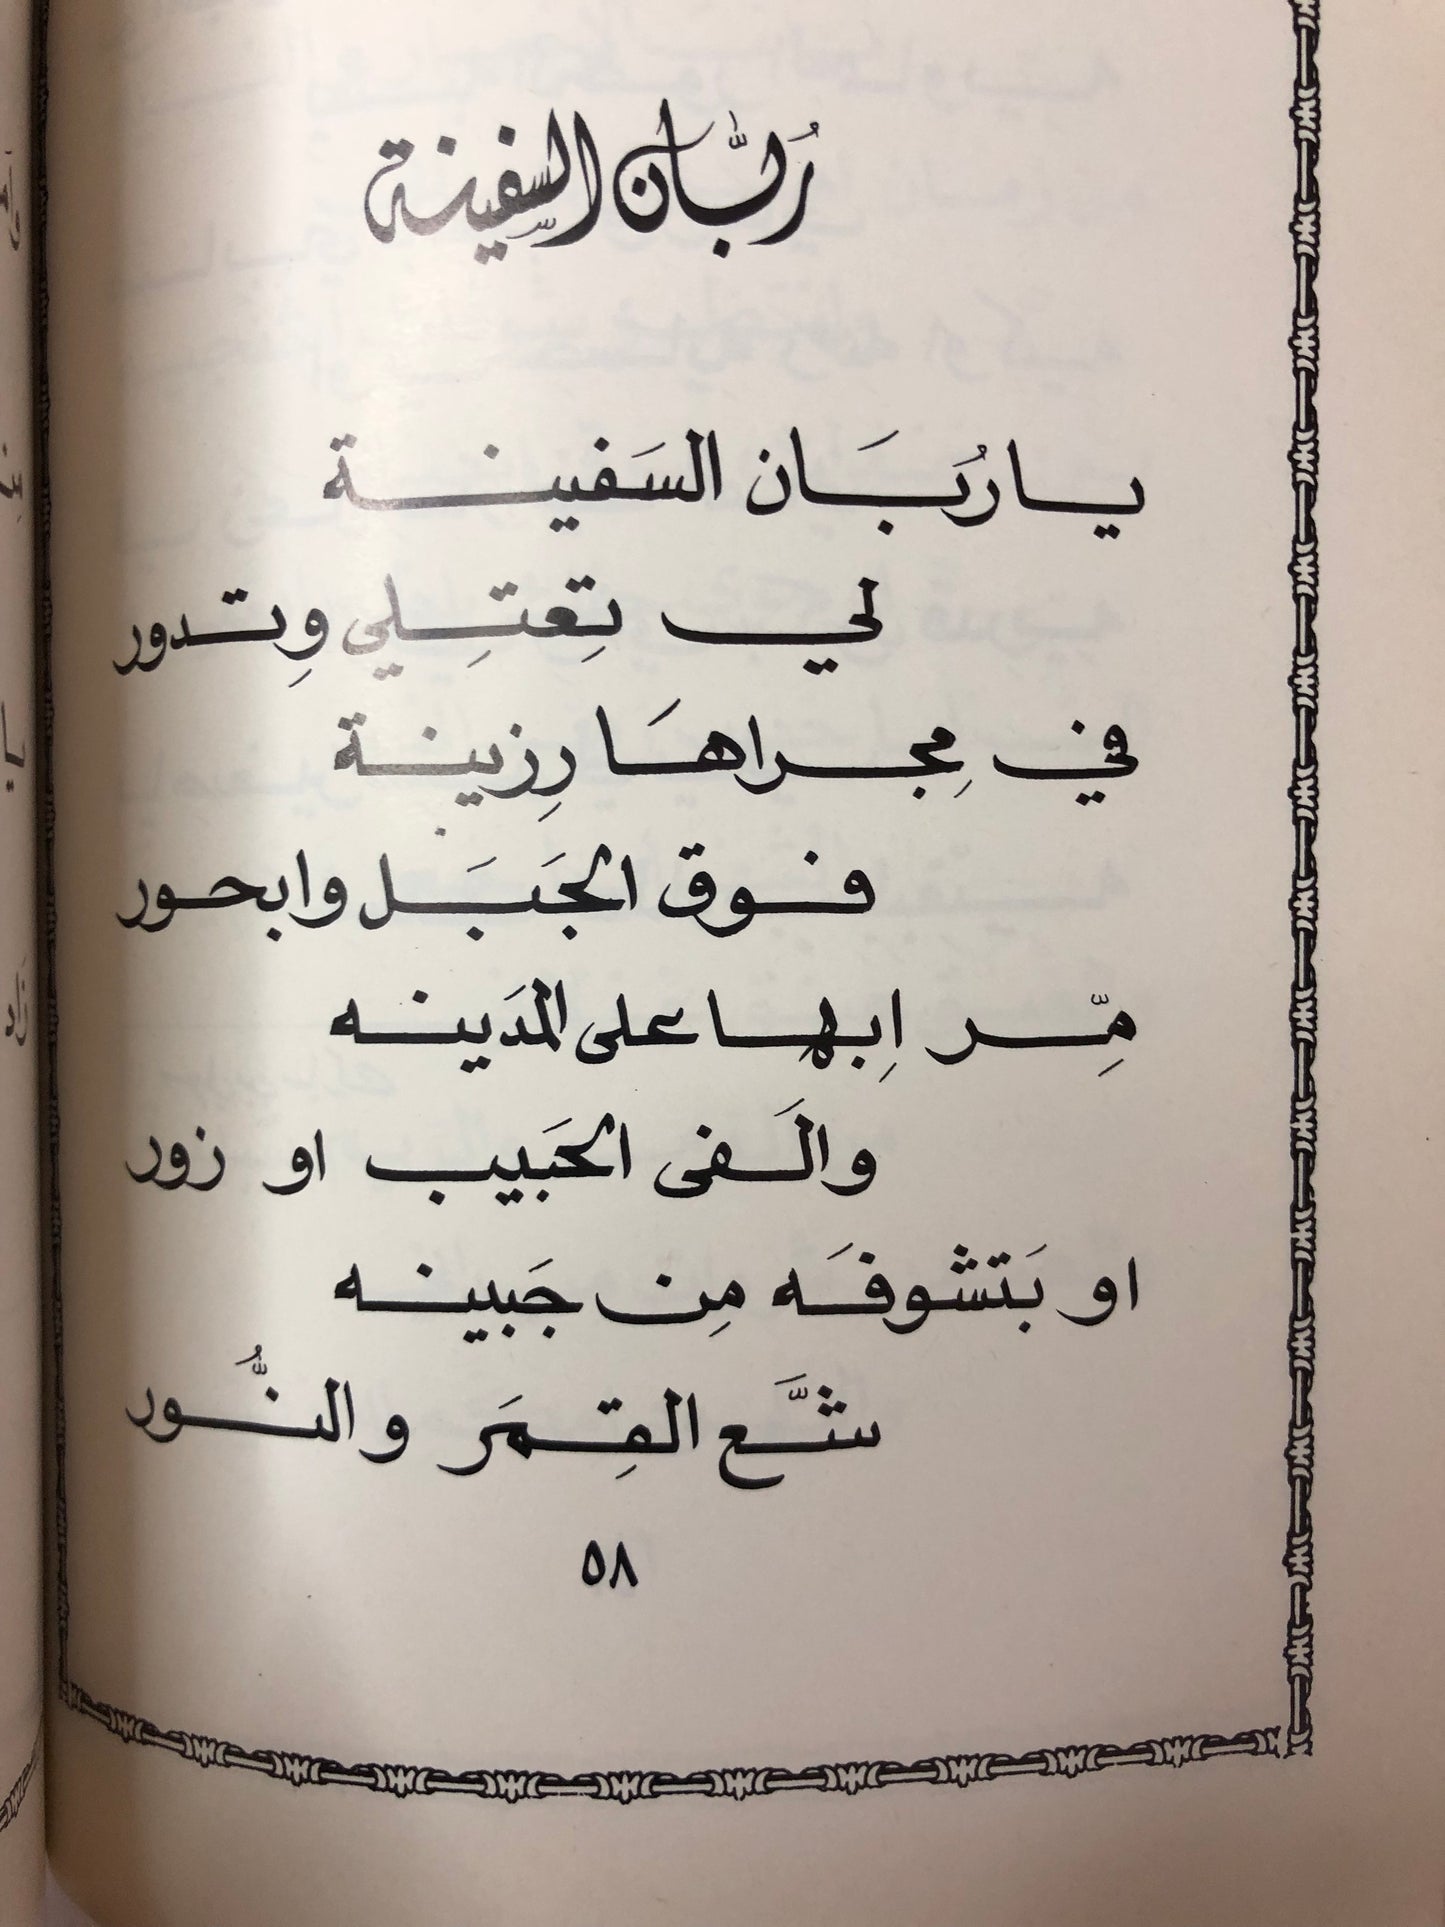 رُبَّان السَّفينة
يا رُبَان السَفينة
لي تِعتِلي وِتدور
في مِجراهَا رِزينة
فوق الجَبَل وابحور
مِّر اِبها على المَدينه
والَفى الحَبيب او زور
او بَتشوفَه مِن جَبينه
شَّع القِمَر والنُّور
٥٨